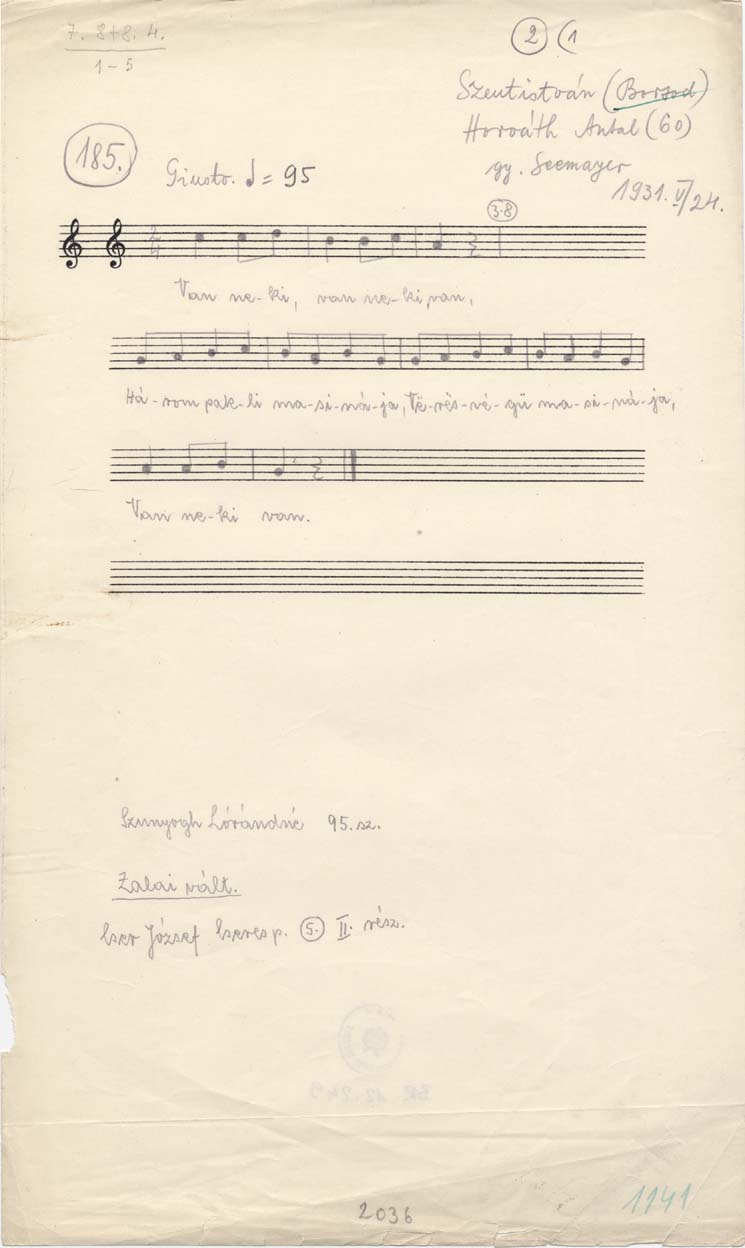 7. 8+8. 4.
1-5
2 (1
Szentistván (Borsod)
Horváth Antal (60)
gy. Seemayer
1931. V/24.
185.
Giusto. ♩ = 95
3·8
2/4
Van ne-ki, van ne-ki, van,
Há-rom pak-li ma-si-ná-ja, Të-rës-vé-gű ma-si-ná-ja,
Van ne-ki van.
Szunyogh Lórándné 95. sz.
Zalai vált.
József 5. II. rész.
2036
1141